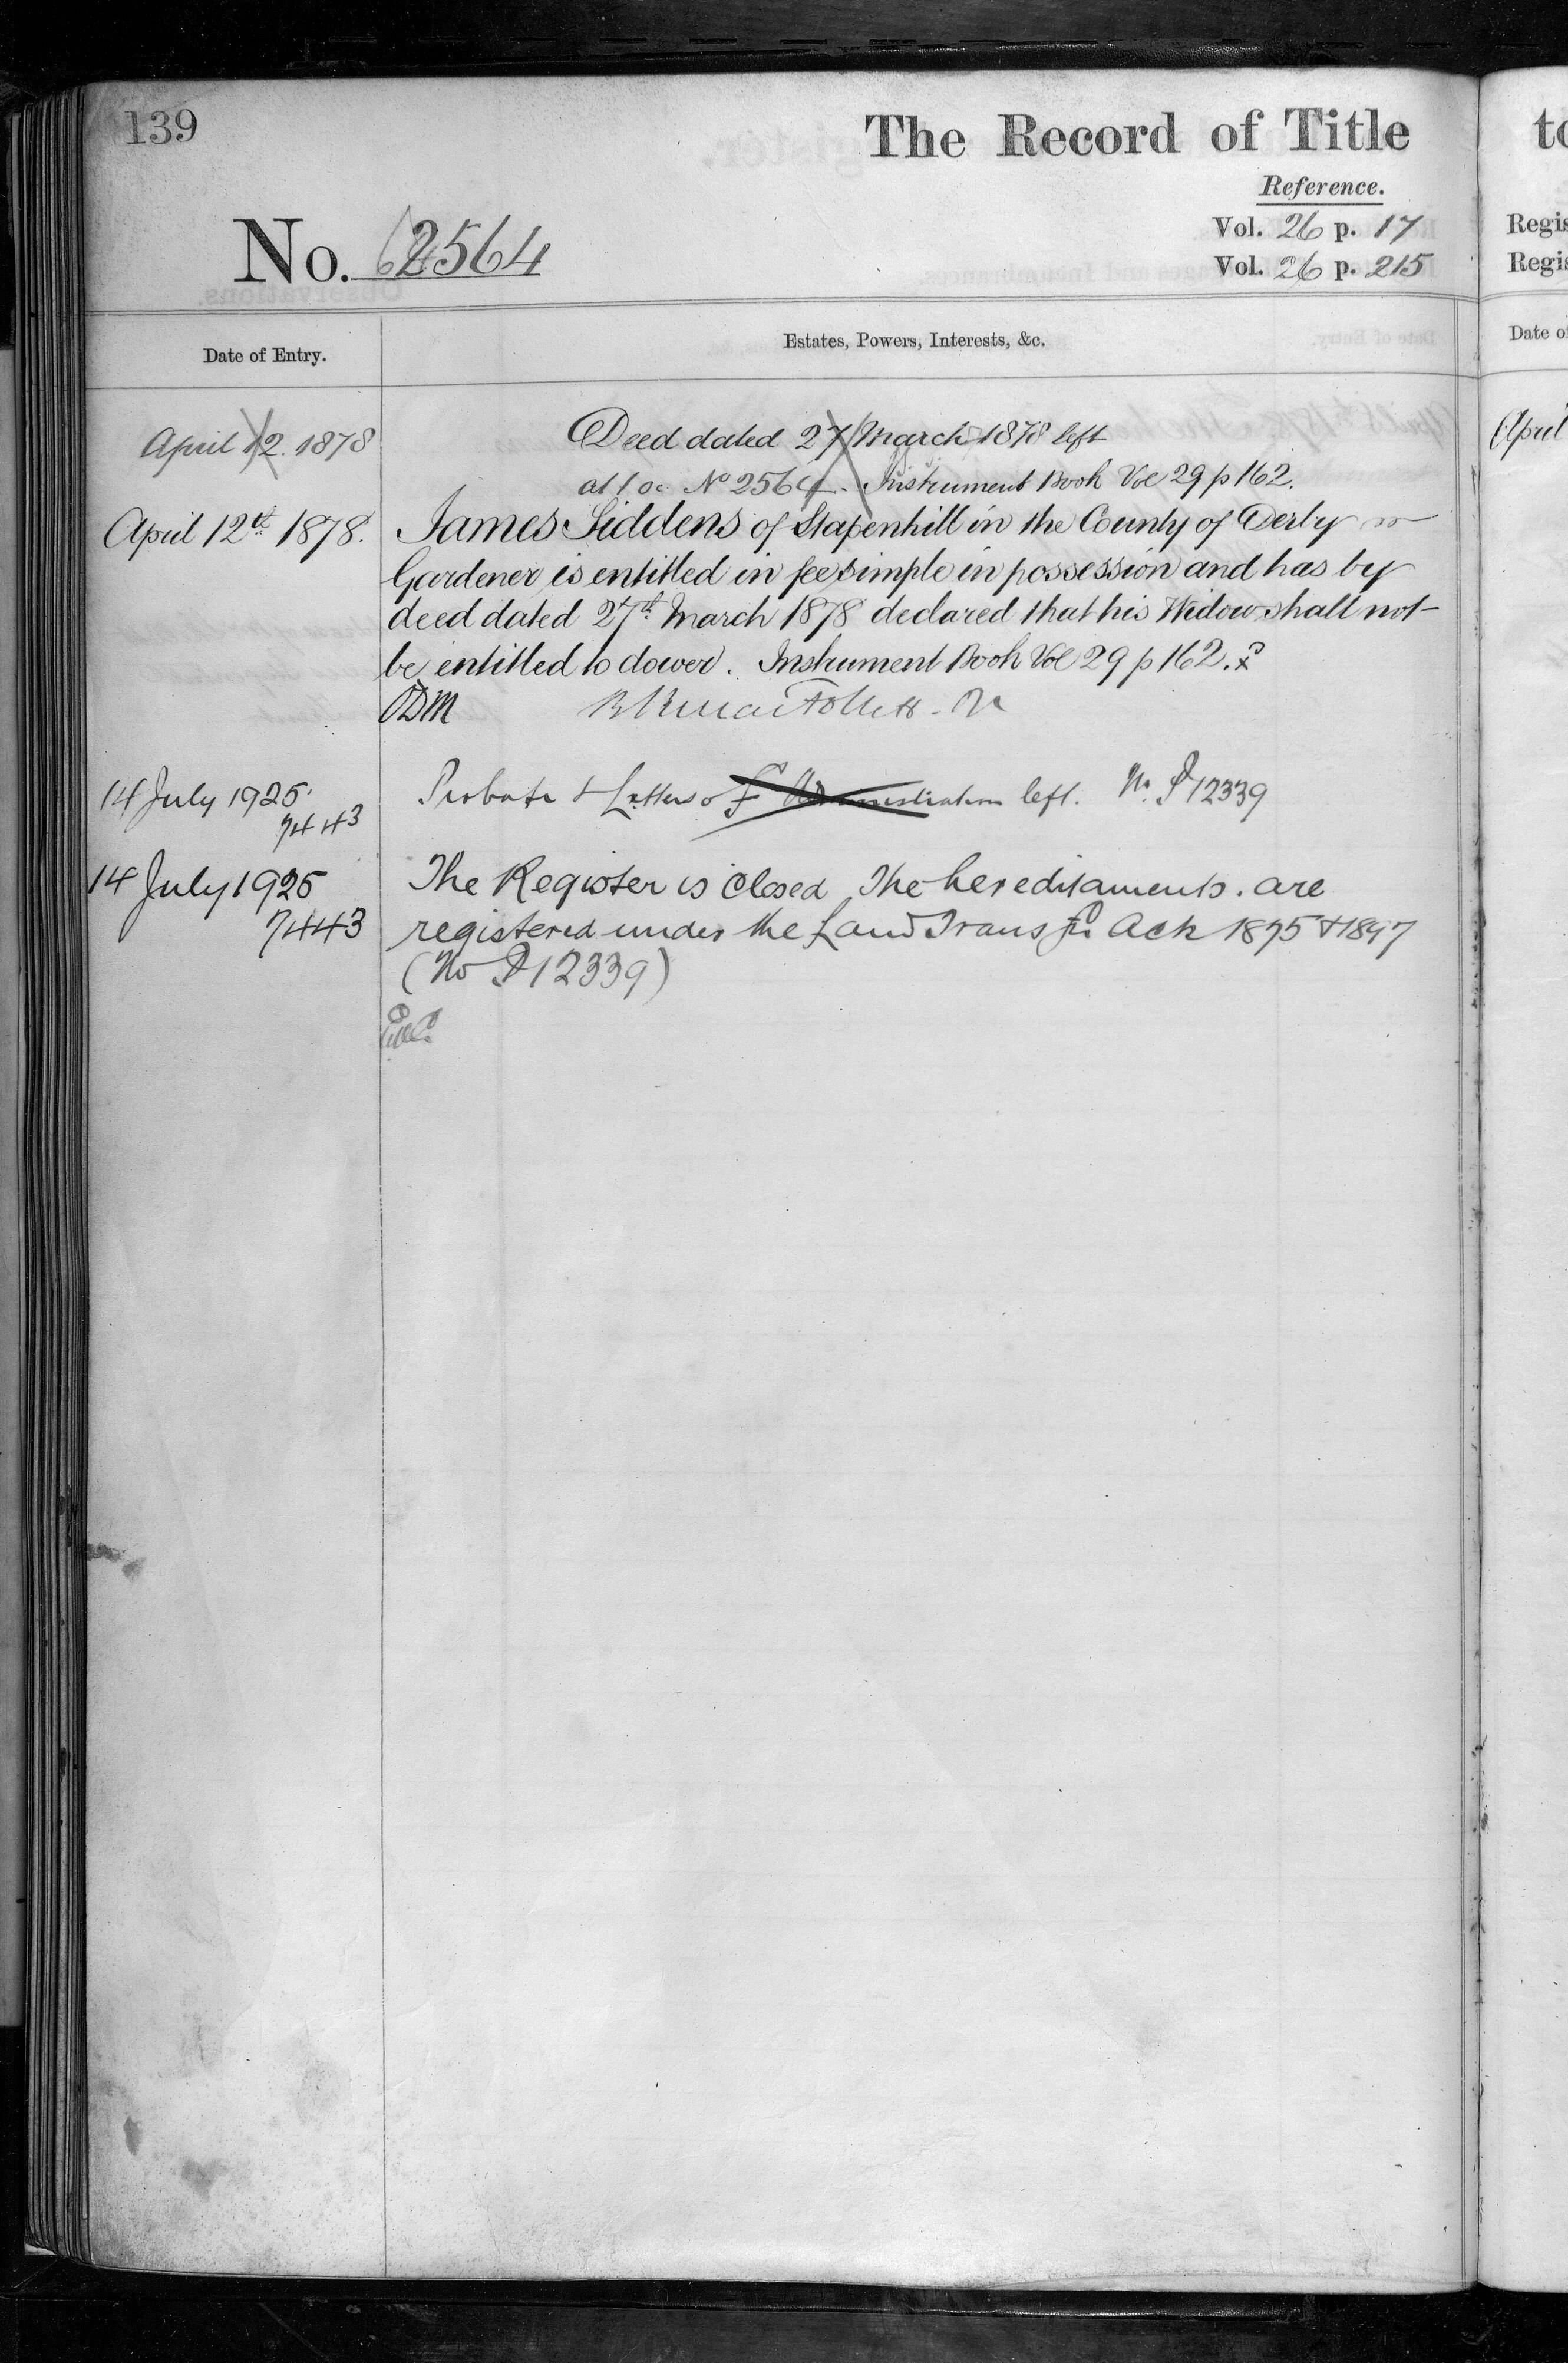 139
The Record of Title
Reference.
Vol. 26 p. 17
Vol. 26 p. 215
No. 2564
Date of Entry.
Estates, Powers, Interests, &c.
April 12. 1878
Deed dated 27 March 1878 left
at 1 oc No 2564. Instrument Book Vol 29 p 162.
April 12th 1878.
James Siddens of Stapenhill in the County of Derby
Gardener is entitled in fee simple in possession and has by
deed dated 27th March 1878 declared that his Widow shall not
be entitled to dower. Instrument Book Vol 29 p 162.
ODM
14 July 1925
7443
Probate & Letters of Administration left. No. P 12339
14 July 1925
7443
The Register is closed The hereditaments. are
registered under the Land Transfr. Acts 1875 & 1897
(No P 12339)
to
Regis
Regis
Date o
April